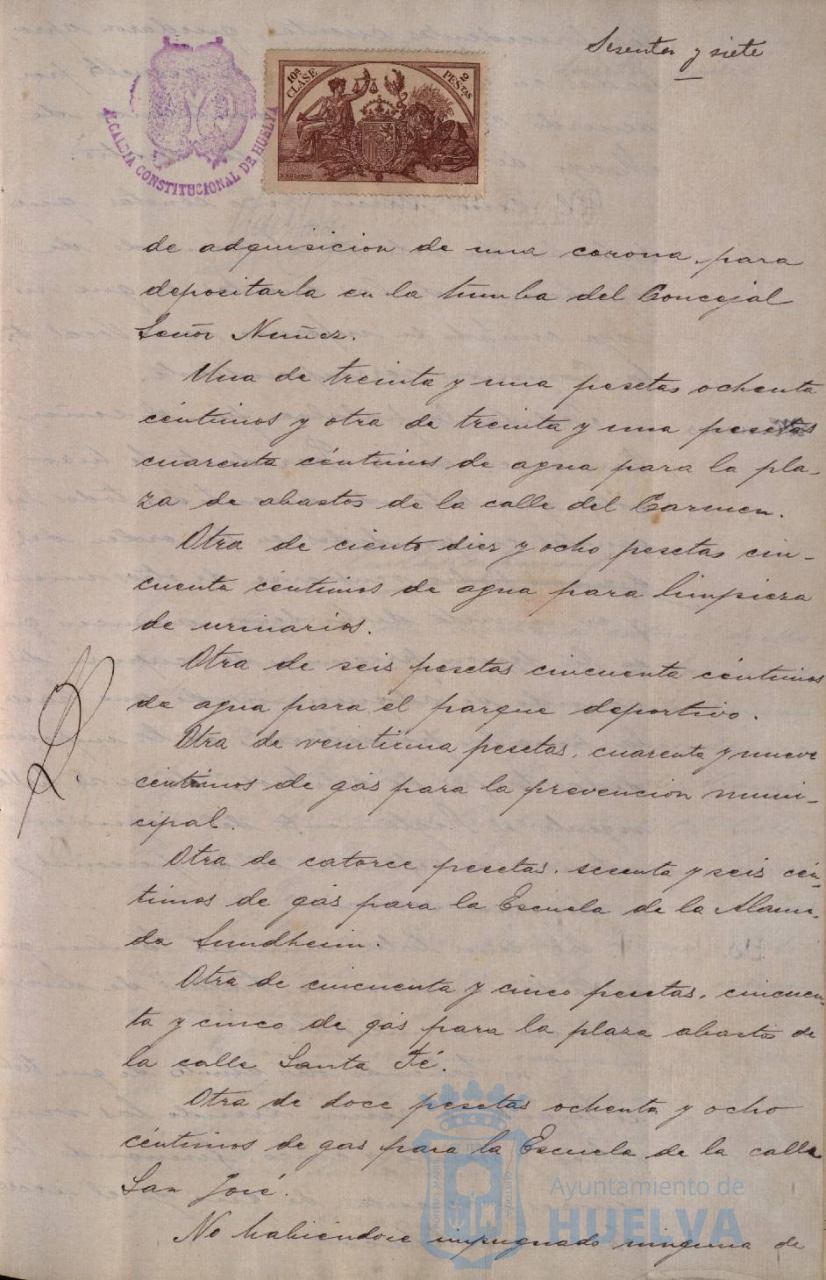 Sesenta y siete
ALCALDIA CONSTITUCIONAL DE HUELVA
10ª CLASE
2 PESTAS
de adquisicion de una corona, para
depositarla en la tumba del Concejal
Señor Nuñez.
Una de treinta y una pesetas ochenta
céntimos y otra de treinta y una pesetas
cuarenta céntimos de agua para la pla-
za de abastos de la calle del Carmen.
Otra de ciento diez y ocho pesetas cin-
cuenta céntimos de agua para limpieza
de urinarios.
Otra de seis pesetas cincuenta céntimos
de agua para el parque deportivo.
Otra de veintiuna pesetas, cuarenta y nueve
centimos de gás para la prevencion muni-
cipal.
Otra de catorce pesetas, sesenta y seis cén-
timos de gás para la Escuela de la Alame-
da Sundheim.
Otra de cincuenta y cinco pesetas, cincuen-
ta y cinco de gás para la plaza abastos de
la calle Santa Fé.
Otra de doce pesetas ochenta y ocho
céntimos de gas para la Escuela de la calle
San José.
No habiendose impugnado ninguna de
Ayuntamiento de
HUELVA